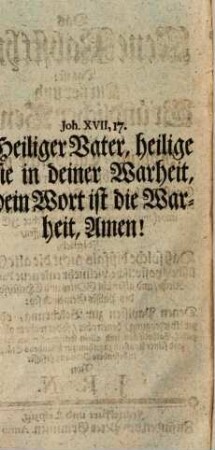 Joh. XVII, 17.
Heiliger Vater, heilige
sie in deiner Warheit,
dein Wort ist die War-
heit, Amen!